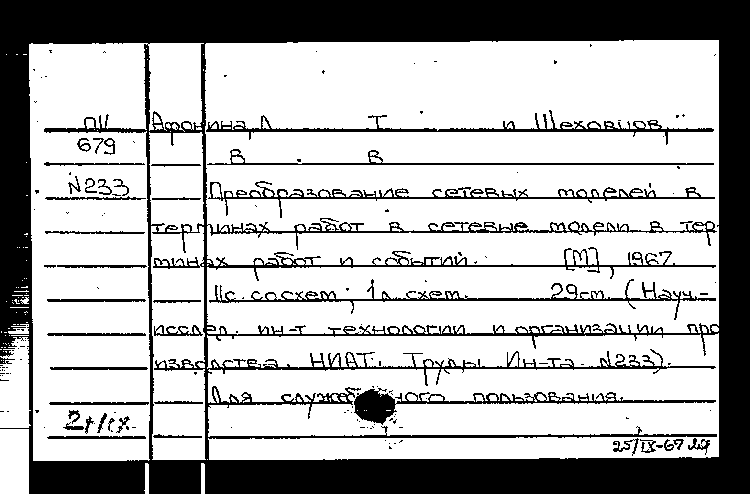 ПII Афонина, Л Т и Шеховцов,
679 В . В
N233 Преобразование сетевых моделей в
терминах работ в сетевые модели в тер-
минах работ и событий. [М], 1967.
11с. со схем; 1л схем. 29см. (Науч.-
исслед. ин-т технологии и организации про
изводства. НИАТ. Труды Ин-та N233).
Для служебного пользования.
25/IX-67